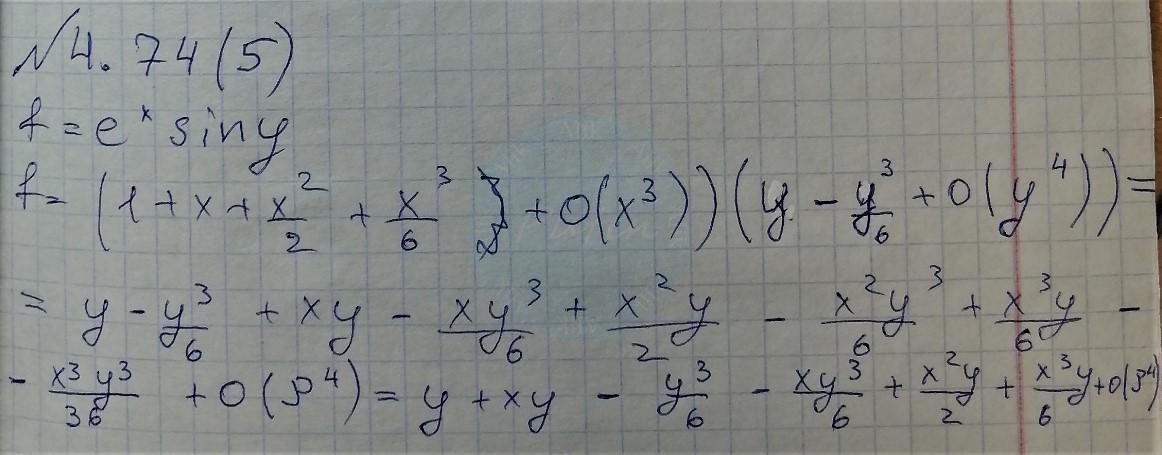 №4.74(5)
f=e^x siny
f=(1+x+x^2/2+x^3/6+o(x^3))(y-y^3/6+o(y^4))=
=y-y^3/6+xy-xy^3/6+x^2y/2-x^2y^3/6+x^3y/6-
-x^3y^3/36+o(ρ^4)=y+xy-y^3/6-xy^3/6+x^2y/2+x^3y/6+o(ρ^4)